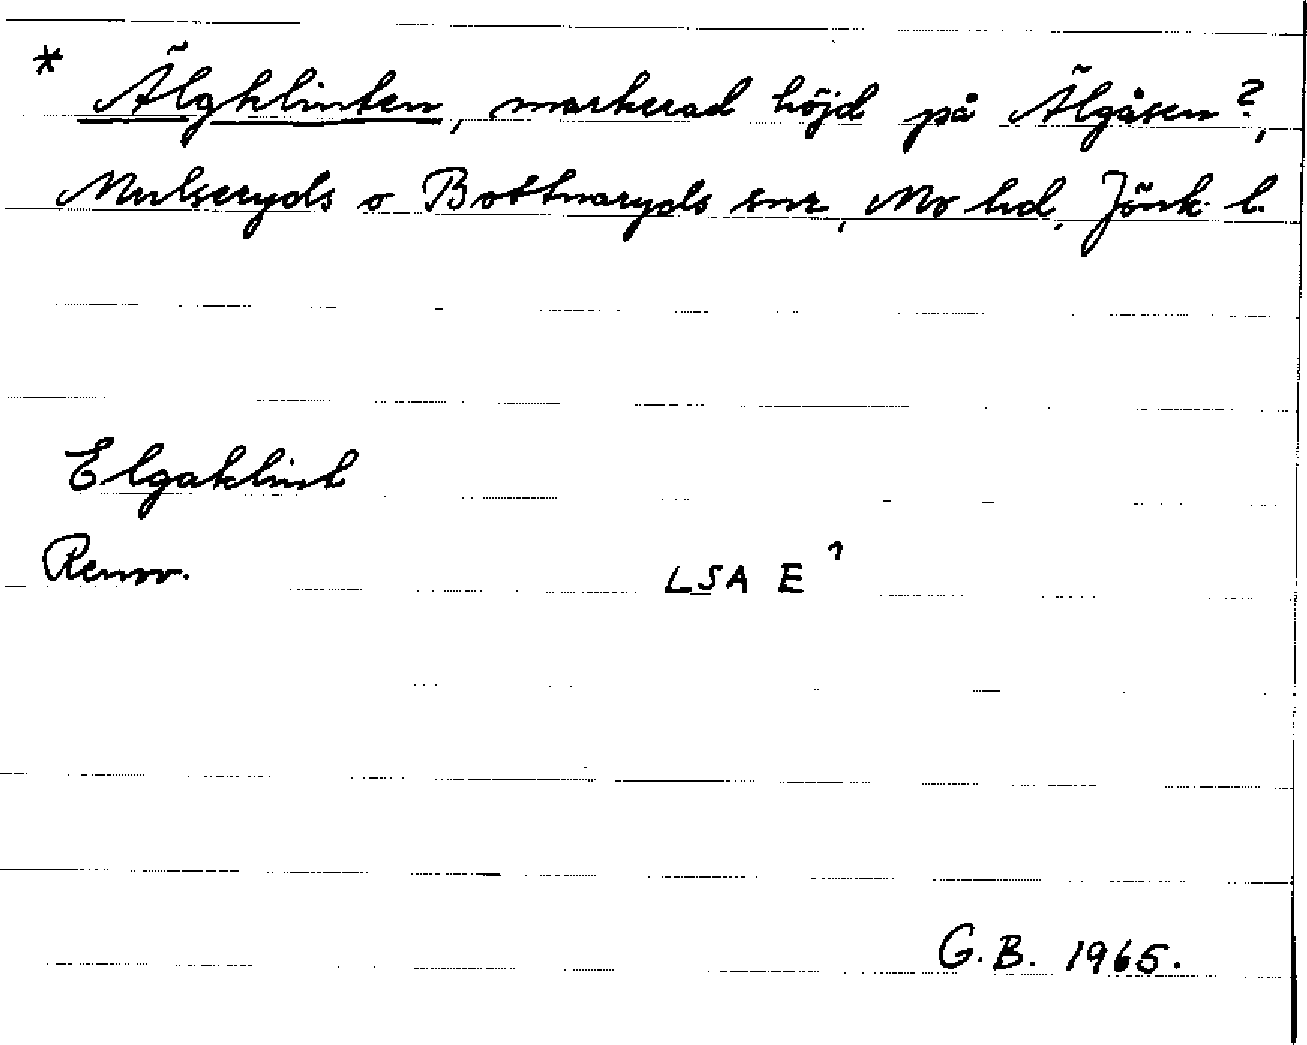 * Älgklinten, markerad höjd på Älgåsen?,
Mulseryds o Bottnaryds snr, Mo hd, Jönk. l.
Elgaklint
Renov. LSA E 1
G.B. 1965.